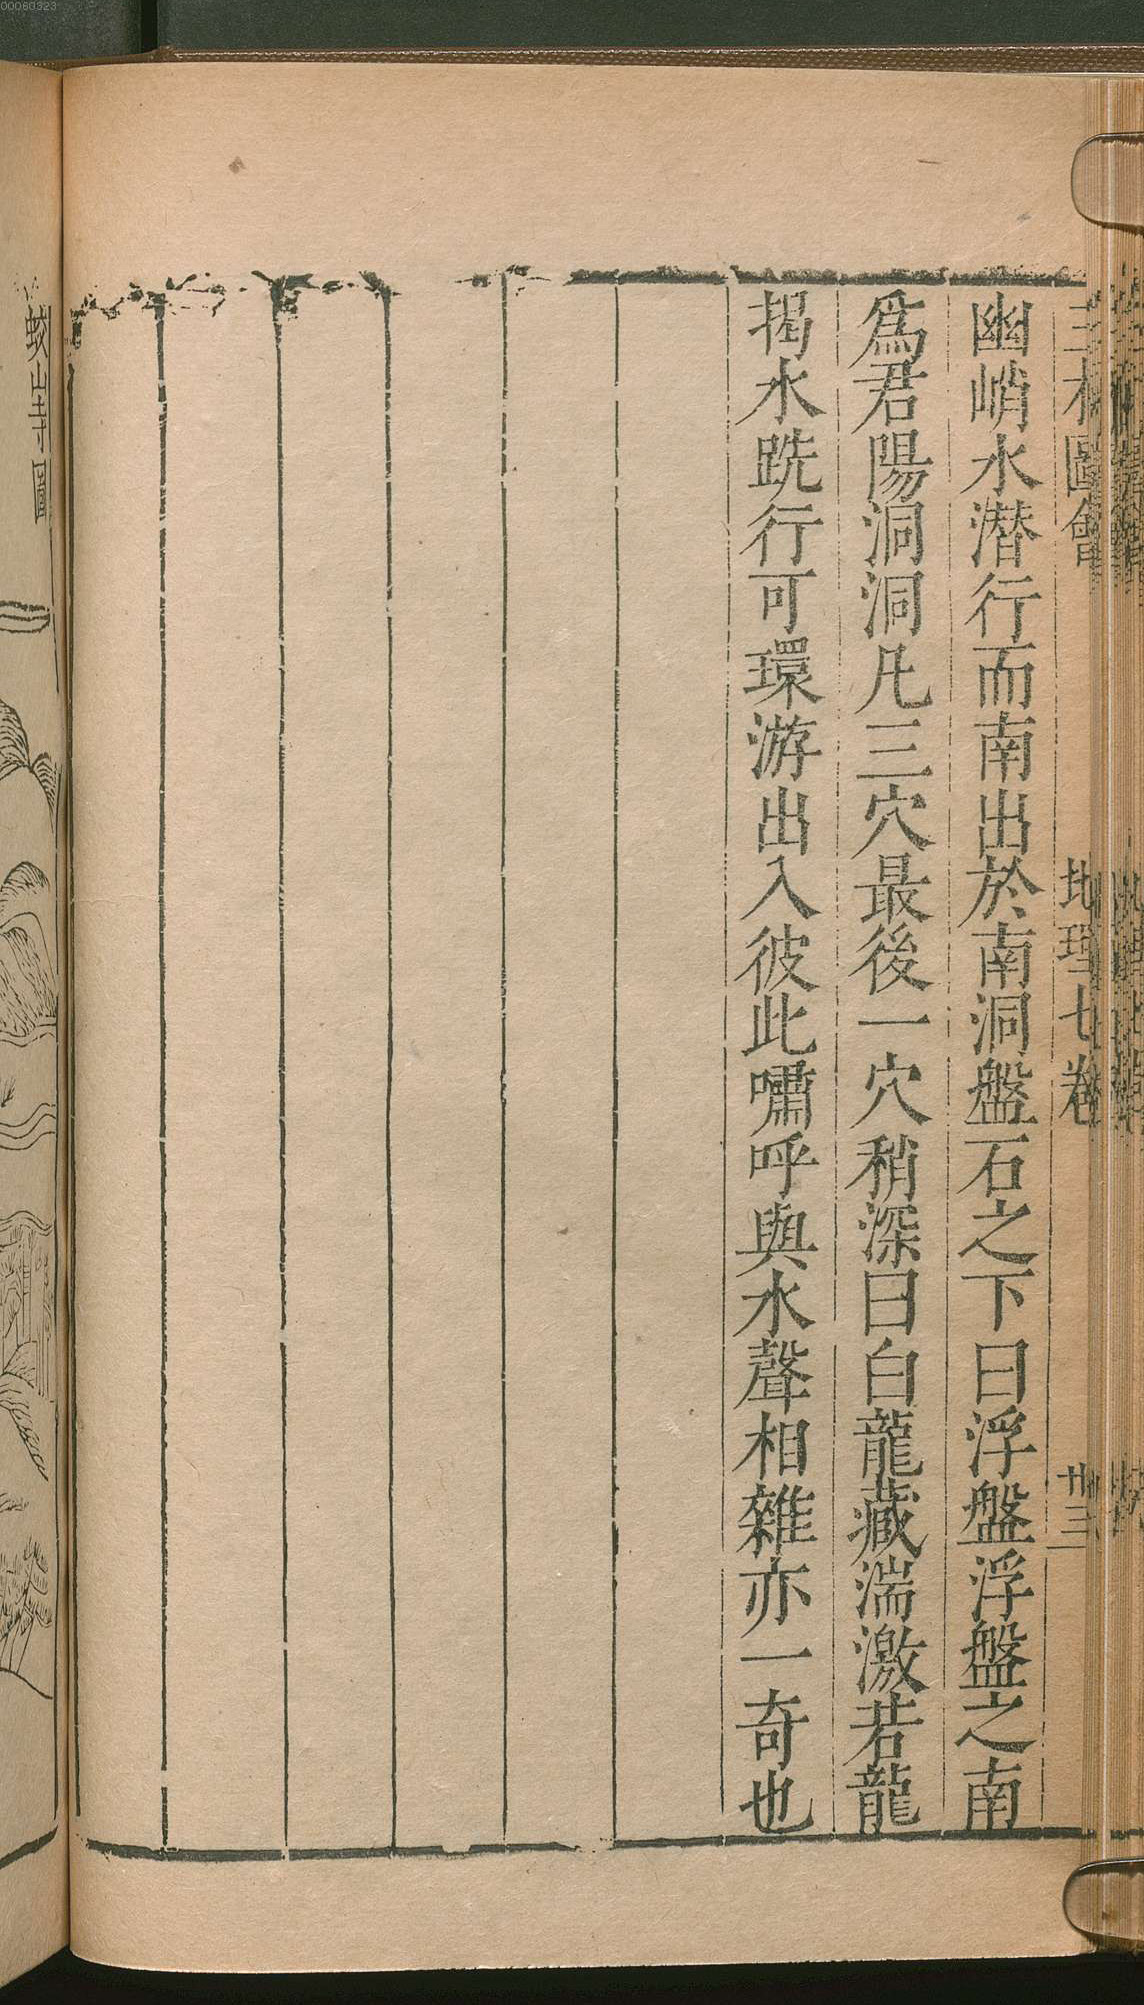 00060323
三才圖會
地理七卷
卅三
幽峭水潜行而南出於南洞盤石之下曰浮盤浮盤之南
爲君陽洞洞凡三穴最後一穴稍深曰白龍藏湍激若龍
揭水跣行可環游出入彼此嘯呼與水聲相雜亦一奇也
蛟山寺圖